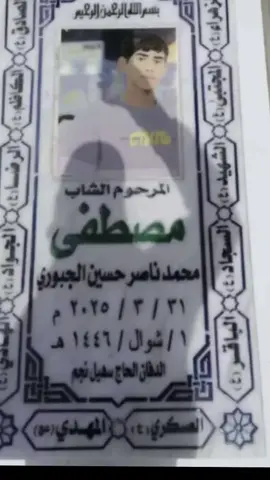 بسم الله الرحمن الرحيم
المرحوم الشاب
مصطفى
محمد ناصر حسين الجبوري
٣١ / ٣ / ٢٠٢٥ م
١ / شوال / ١٤٤٦ هـ
الدفان الحاج سهيل نجم
الزهراء (ع)
المجتبى (ع)
الشهيد (ع)
السجاد (ع)
الباقر (ع)
الصادق (ع)
الكاظم (ع)
الرضا (ع)
الجواد (ع)
الهادي (ع)
العسكري (ع)
المهدي (عج)